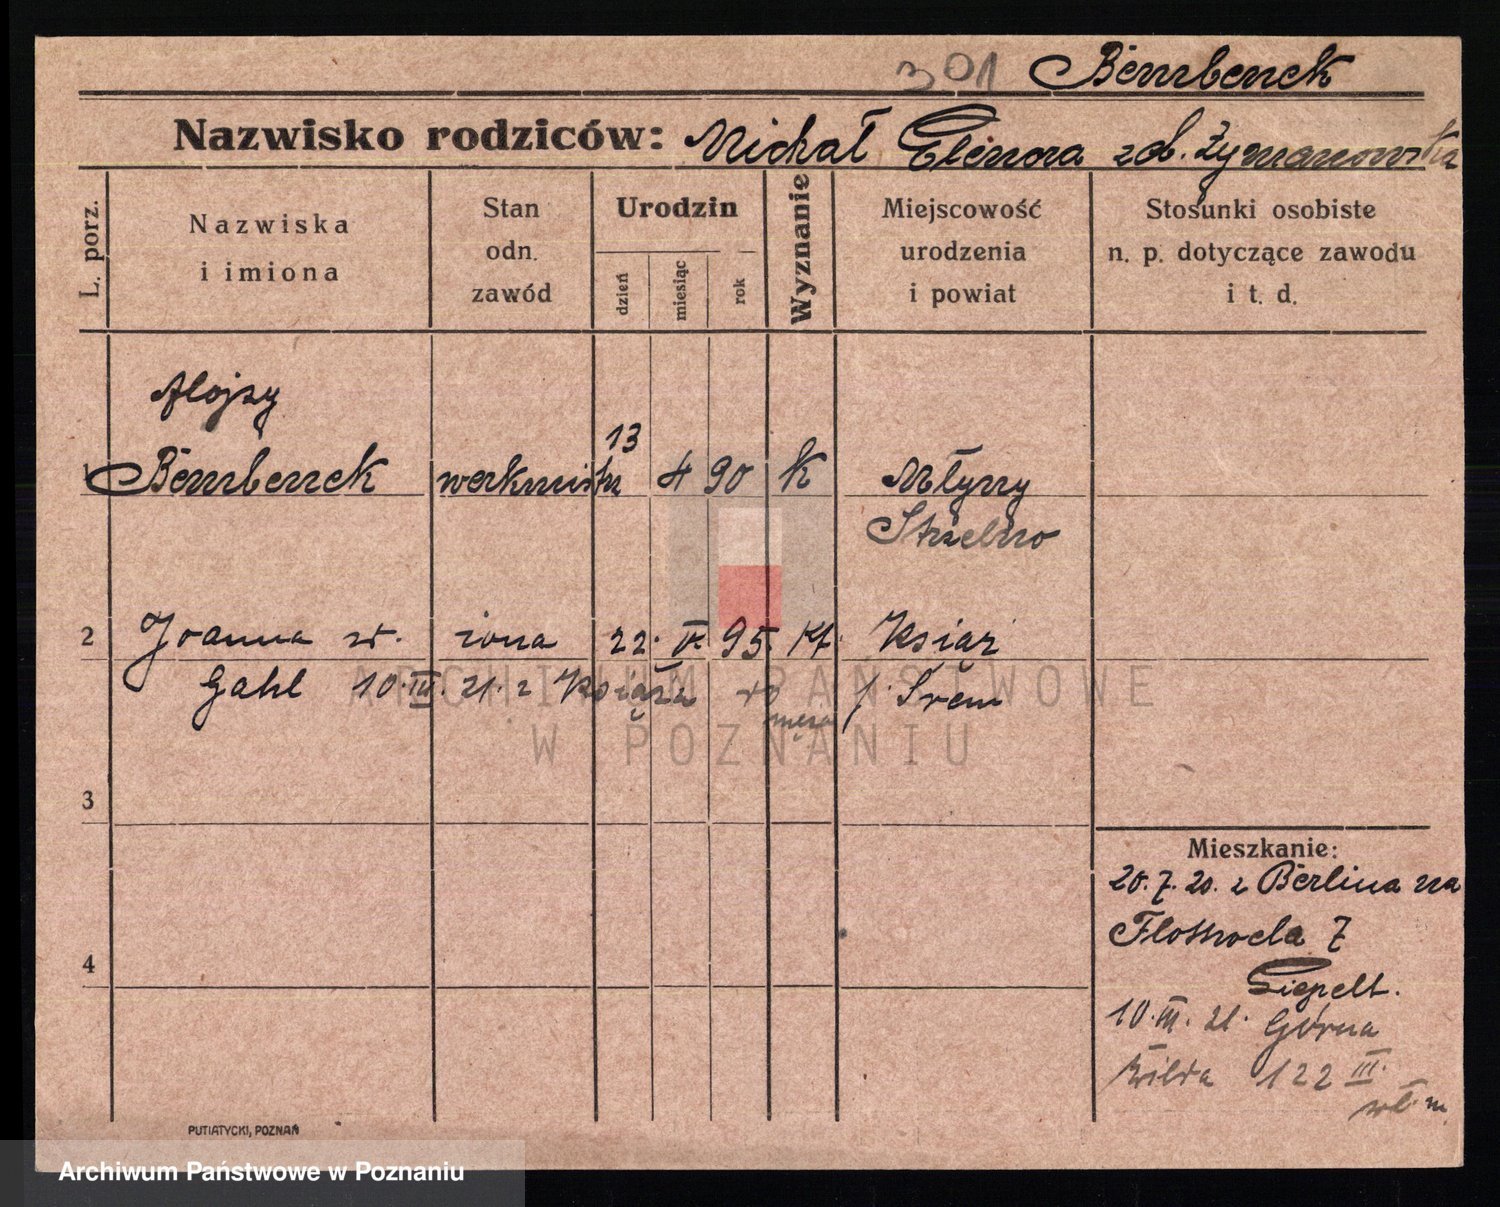 301 Bembenek
Nazwisko rodziców: Michał Elenora zd. Żymanowska
L. porz.
Nazwiska
i imiona
Stan
odn.
zawód
Urodzin
dzień
miesiąc
rok
Wyznanie
Miejscowość
urodzenia
i powiat
Stosunki osobiste
n. p. dotyczące zawodu
i t. d.
Alojzy
1 Bembenek werkmistrz 13 4 90 K Młyny
Strzelno
2 Joanna z d. żona 22. V. 95. Kt. Książ
Gahl 10. III. 21. z Książa do męża Śrem
3
4
Mieszkanie:
20. 7. 20. z Berlina na
Flottwela 7
Siepelt.
10. III. 21. Górna
Wilda 122 III.
wł. m.
PUTIATYCKI, POZNAŃ
ARCHIWUM PAŃSTWOWE
W POZNANIU
Archiwum Państwowe w Poznaniu